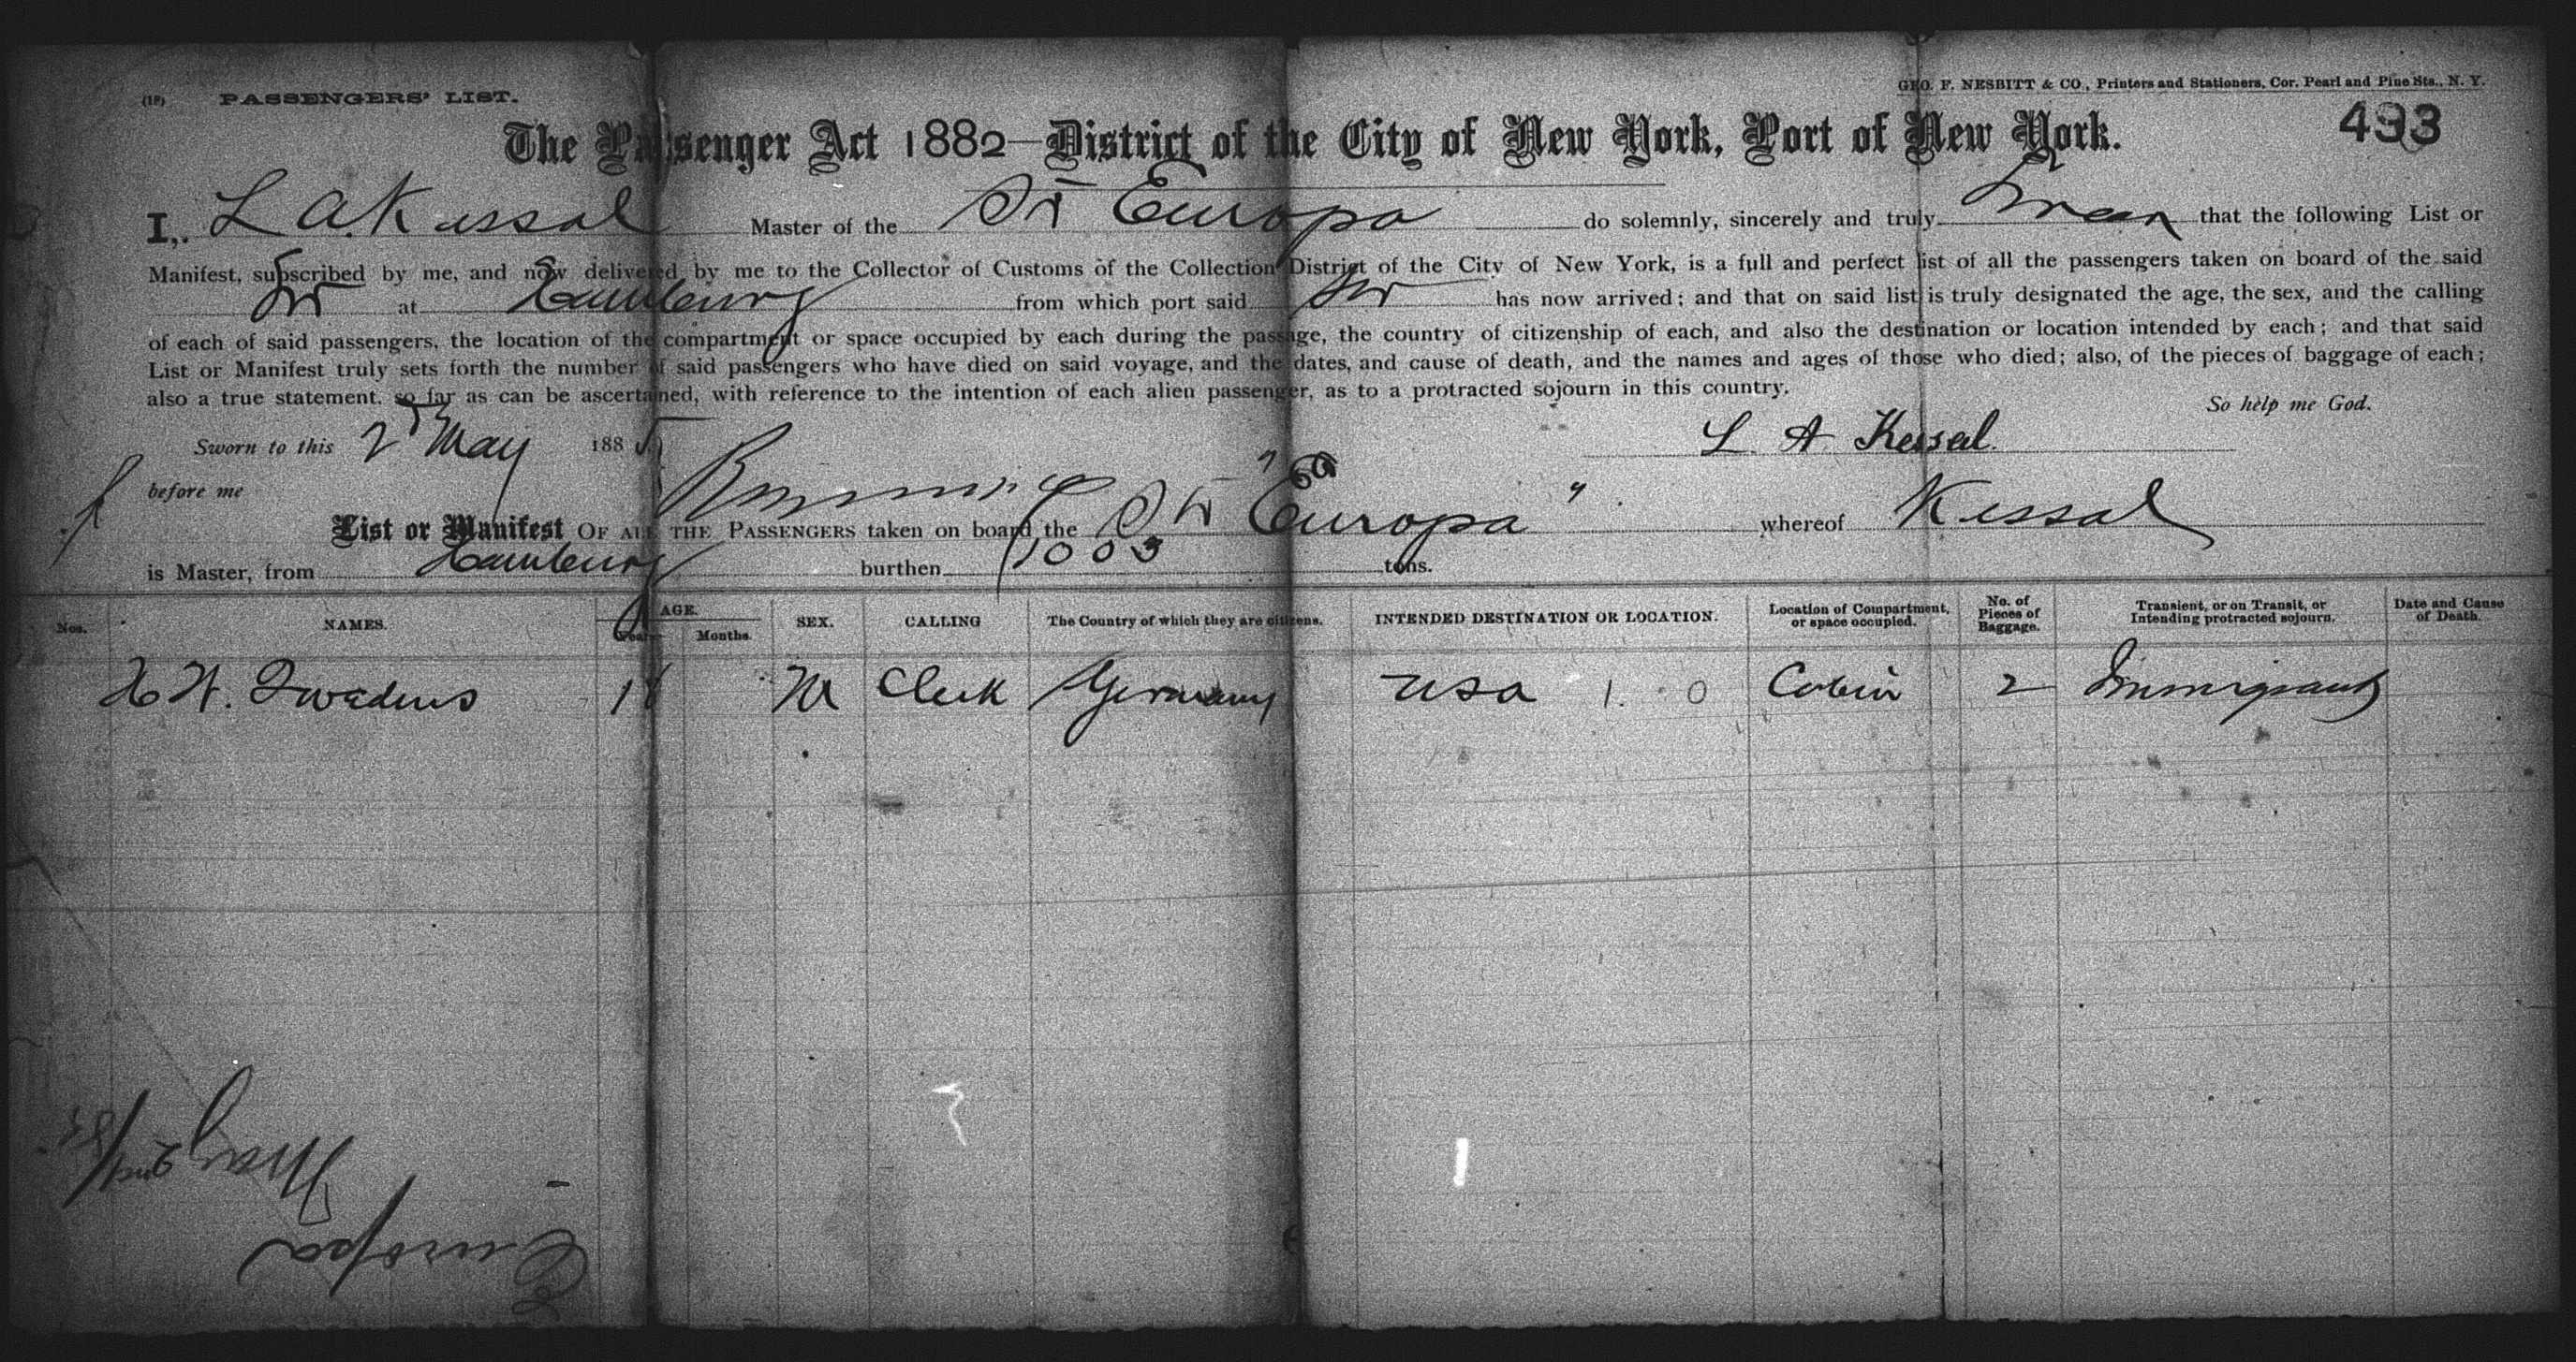 (18) PASSENGERS' LIST.
GEO. F. NESBITT & CO., Printers and Stationers, Cor. Pearl and Pine Sts., N. Y.
433
The Passenger Act 1882—District of the City of New York, Port of New York.
I, L A. Kessal Master of the Str Europa do solemnly, sincerely and truly Swear that the following List or
Manifest, subscribed by me, and now delivered by me to the Collector of Customs of the Collection District of the City of New York, is a full and perfect list of all the passengers taken on board of the said
Str at Hamburg from which port said Str has now arrived; and that on said list is truly designated the age, the sex, and the calling
of each of said passengers, the location of the compartment or space occupied by each during the passage, the country of citizenship of each, and also the destination or location intended by each; and that said
List or Manifest truly sets forth the number of said passengers who have died on said voyage, and the dates, and cause of death, and the names and ages of those who died; also, of the pieces of baggage of each;
also a true statement, so far as can be ascertained, with reference to the intention of each alien passenger, as to a protracted sojourn in this country.
So help me God.
Sworn to this 2 May 1885
L. A Kessal.
before me
List or Manifest OF ALL THE PASSENGERS taken on board the Str "Europa" whereof Kessal
is Master, from Hamburg burthen 1003 tons.
Nos. NAMES. AGE. Years Months. SEX. CALLING The Country of which they are citizens. INTENDED DESTINATION OR LOCATION. Location of Compartment, or space occupied. No. of Pieces of Baggage. Transient, or on Transit, or Intending protracted sojourn. Date and Cause of Death.
H W. 18 M Clerk Germany USA 1. 0 Cabin 2 Immigrant
Europa
May 2nd/85